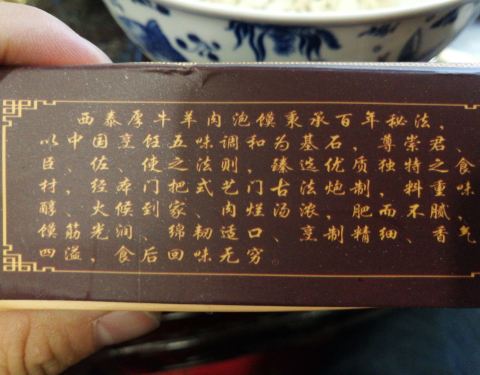 西泰厚牛羊肉泡馍秉承百年秘法，
以中国烹饪五味调和为基石，尊崇君、
臣、佐、使之法则，臻选优质独特之食
材，经本门把式艺门古法炮制，料重味
醇、火候到家、肉烂汤浓，肥而不腻、
馍筋光润、绵韧适口、烹制精细、香气
四溢，食后回味无穷。